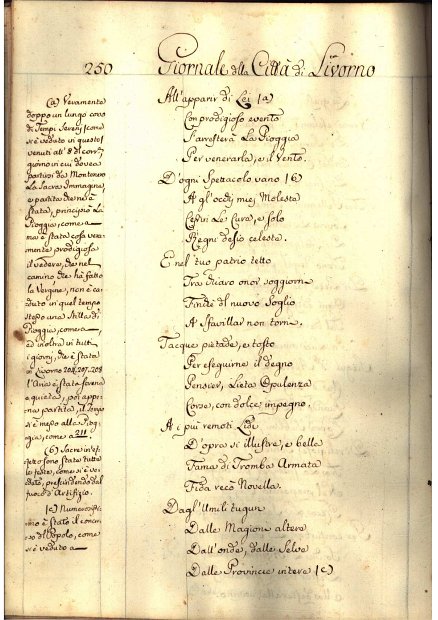 250 Giornale della Città di Livorno
(a) Veramente
doppo un lungo corso
di Tempi Sereni, come
si è veduto in questi
venuti
giorno in cui dovea
partirsi da Montenero
La Sacra Immagine,
e partita che ne è
stata, principiò La
Pioggia, come a
ma è stata cosa vera-
mente prodigiosa
il vedere, che nel
camino che hà fatto
la Vergine, non è ca-
duto in quel tempo
stesso una Stilla di
Pioggia, come a
ed inoltre in tutti
i giorni, che è stata
in Livorno 206, 207, 208
l'Aria è stata serena
e quieta, poi appe-
na partita, il Tempo
si è messo alla Piog-
gia, come a 211
(b) Sacre in ef-
fetto sono state tutte
le feste, come si è ve-
duto, prescindendo dal
fuoco d'Artifizio.
(c) Numerosis-
simo è stato il concor-
so di Popolo, come
si è veduto a
All'apparir di Lei (a)
Con prodigioso evento
S'arresterà La Pioggia
Per venerarla, e il Vento.
D'ogni Spettacolo vano (b)
A gl'occhj miej Molesta
Cessin Le Cure, e solo
Regni desio celeste.
E nel tuo patrio tetto
Tra chiaro onor soggiorni
Finchè del nuovo Soglio
A Sfavillar non torni.
Tacque pietade, e tosto
Per eseguirne il degno
Pensier, Lieta Opulenza
Corse, con dolce impegno.
A i più remoti Lidi
D'opra sì illustre, e bella
Fama di Tromba Armata
Fida recò Novella.
Dagl'Umili tugurj
Dalle Magioni altere
Dall'onde, dalle Selve
Dalle Provincie intere (c)